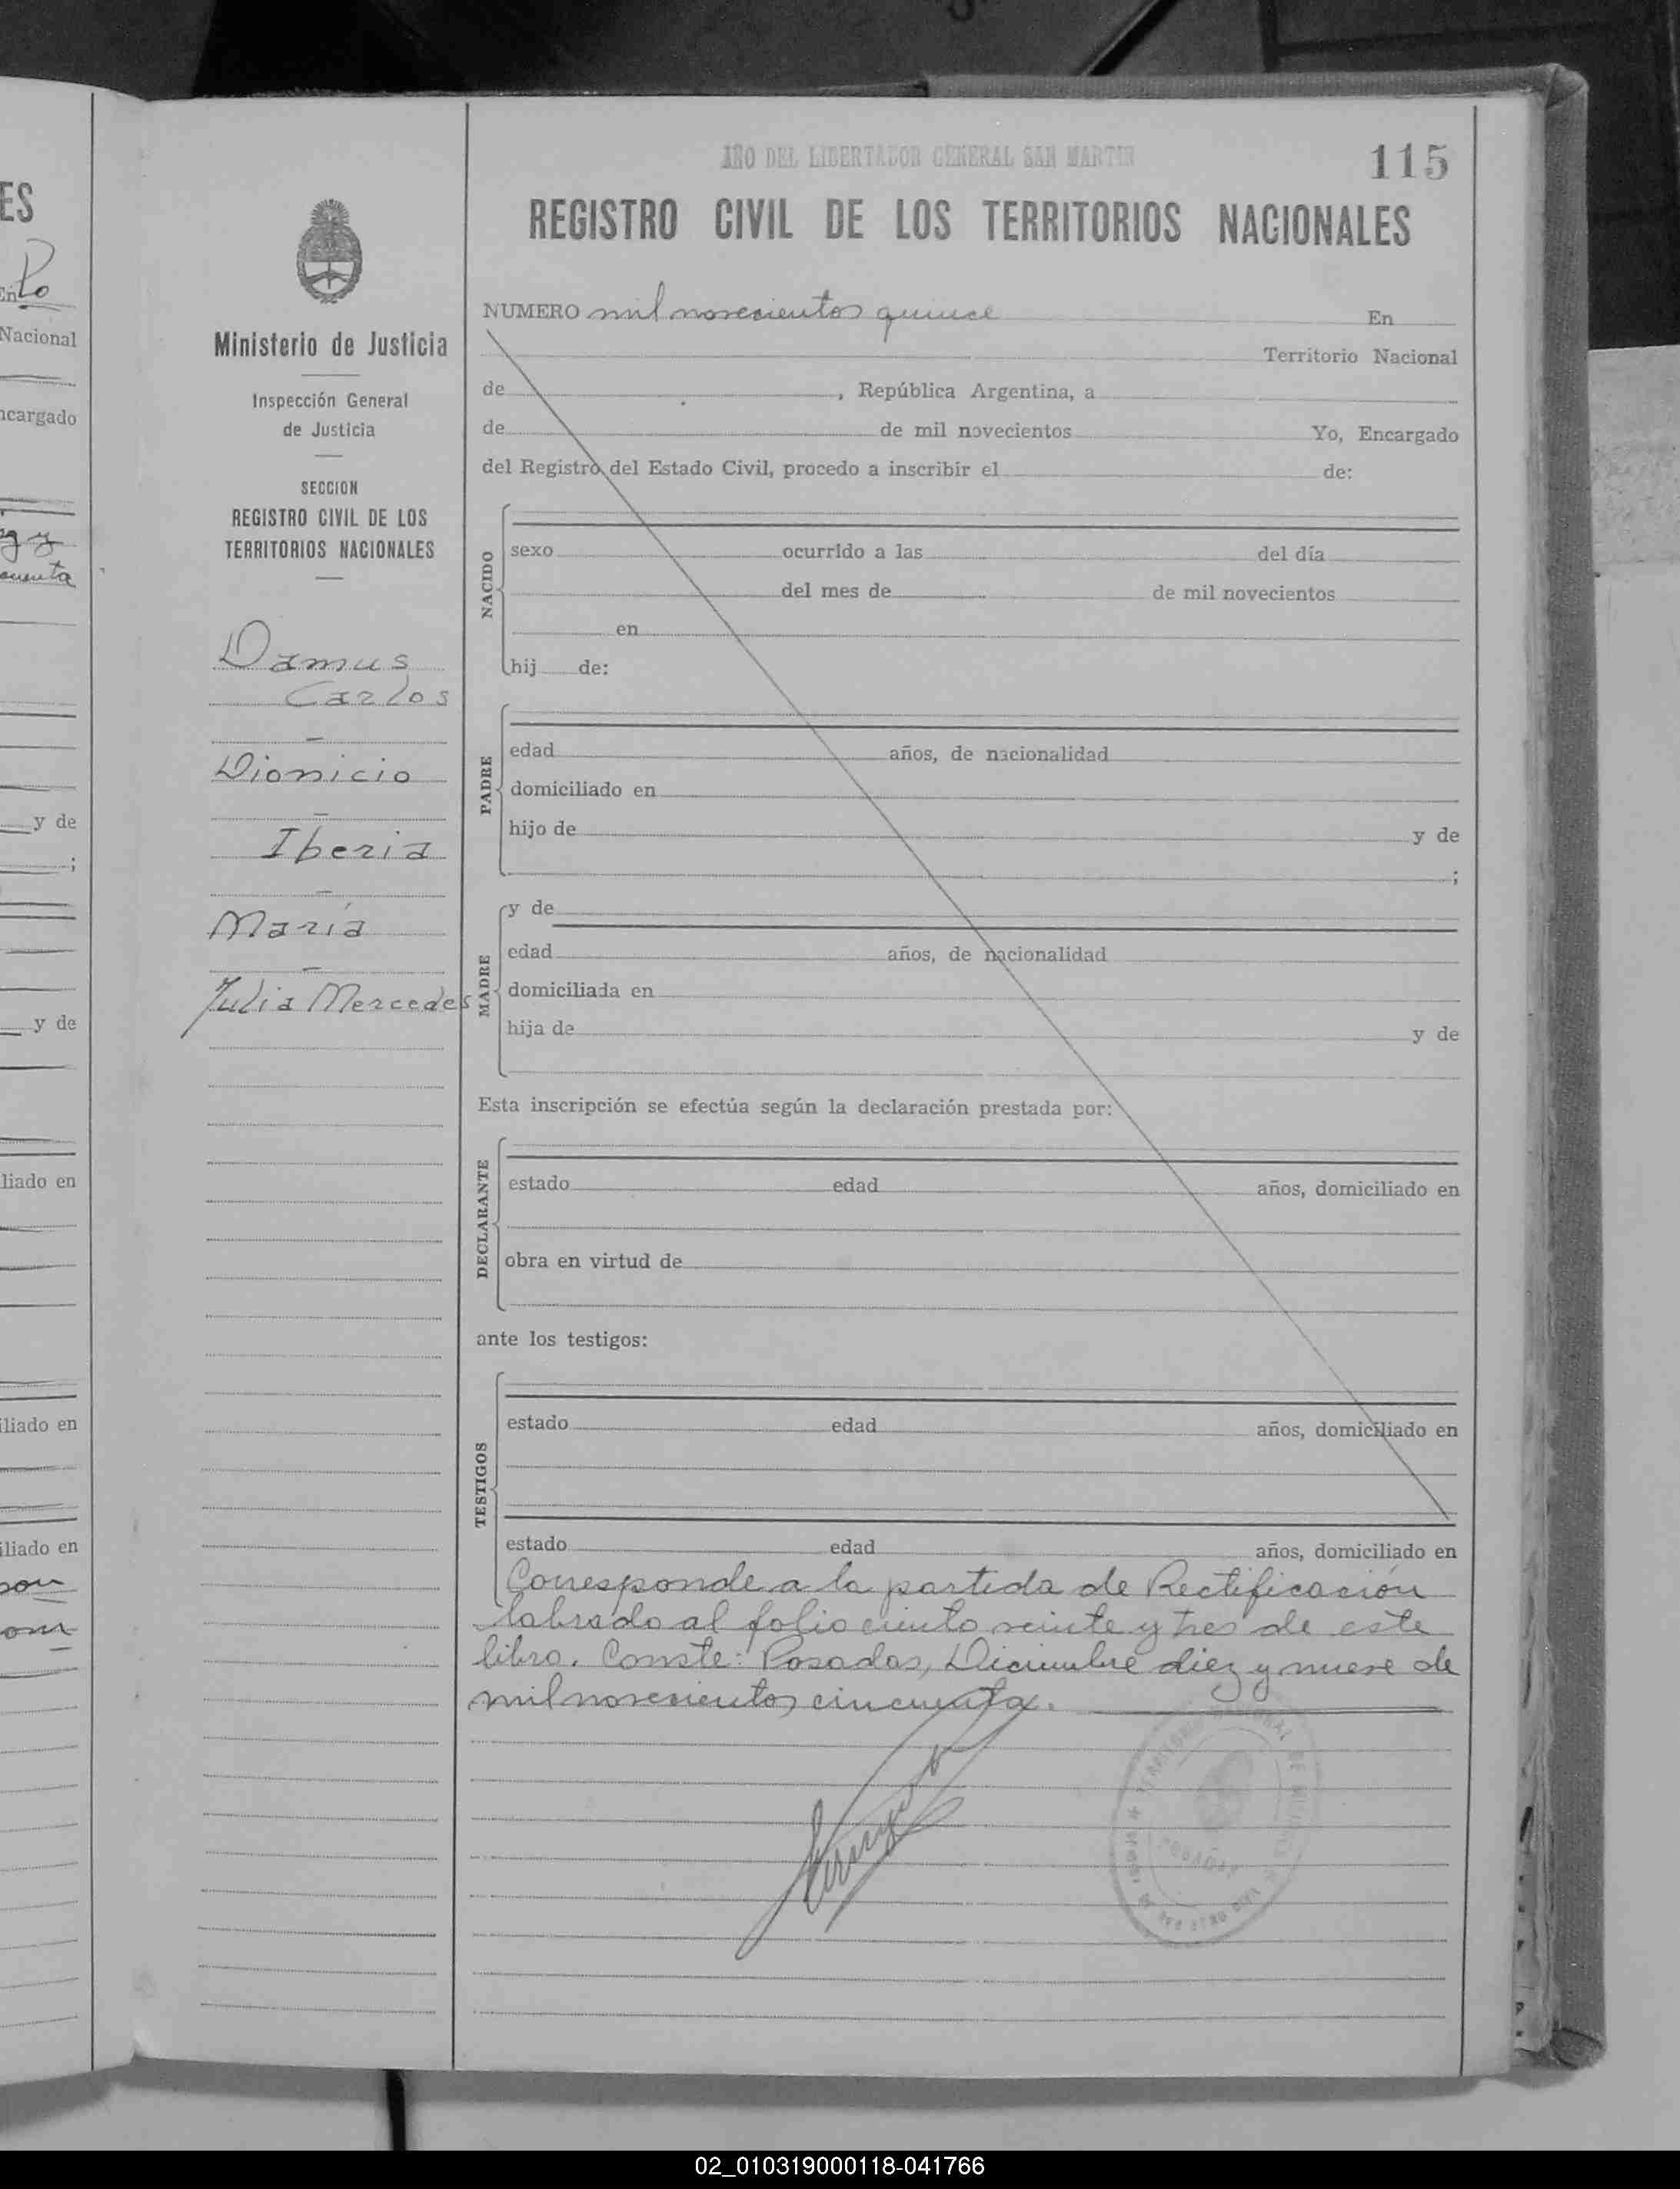 ES
En Po
Nacional
ncargado
y de
;
y de
liado en
iliado en
iliado en
Ministerio de Justicia
Inspección General
de Justicia
SECCION
REGISTRO CIVIL DE LOS
TERRITORIOS NACIONALES
Damus
Carlos
Dionicio
Iberia
María
Julia Mercedes
AÑO DEL LIBERTADOR GENERAL SAN MARTIN
115
REGISTRO CIVIL DE LOS TERRITORIOS NACIONALES
NUMERO mil novecientos quince En
Territorio Nacional
de , República Argentina, a
de de mil novecientos Yo, Encargado
del Registro del Estado Civil, procedo a inscribir el de:
NACIDO
sexo ocurrido a las del día
del mes de de mil novecientos
en
hij de:
PADRE
edad años, de nacionalidad
domiciliado en
hijo de y de
;
MADRE
y de
edad años, de nacionalidad
domiciliada en
hija de y de
Esta inscripción se efectúa según la declaración prestada por:
DECLARANTE
estado edad años, domiciliado en
obra en virtud de
ante los testigos:
TESTIGOS
estado edad años, domiciliado en
estado edad años, domiciliado en
Corresponde a la partida de Rectificación
labrado al folio ciento veinte y tres de este
libro. Conste: Posadas, Diciembre diez y nueve de
mil novecientos cincuenta.
POSADAS
02_010319000118-041766